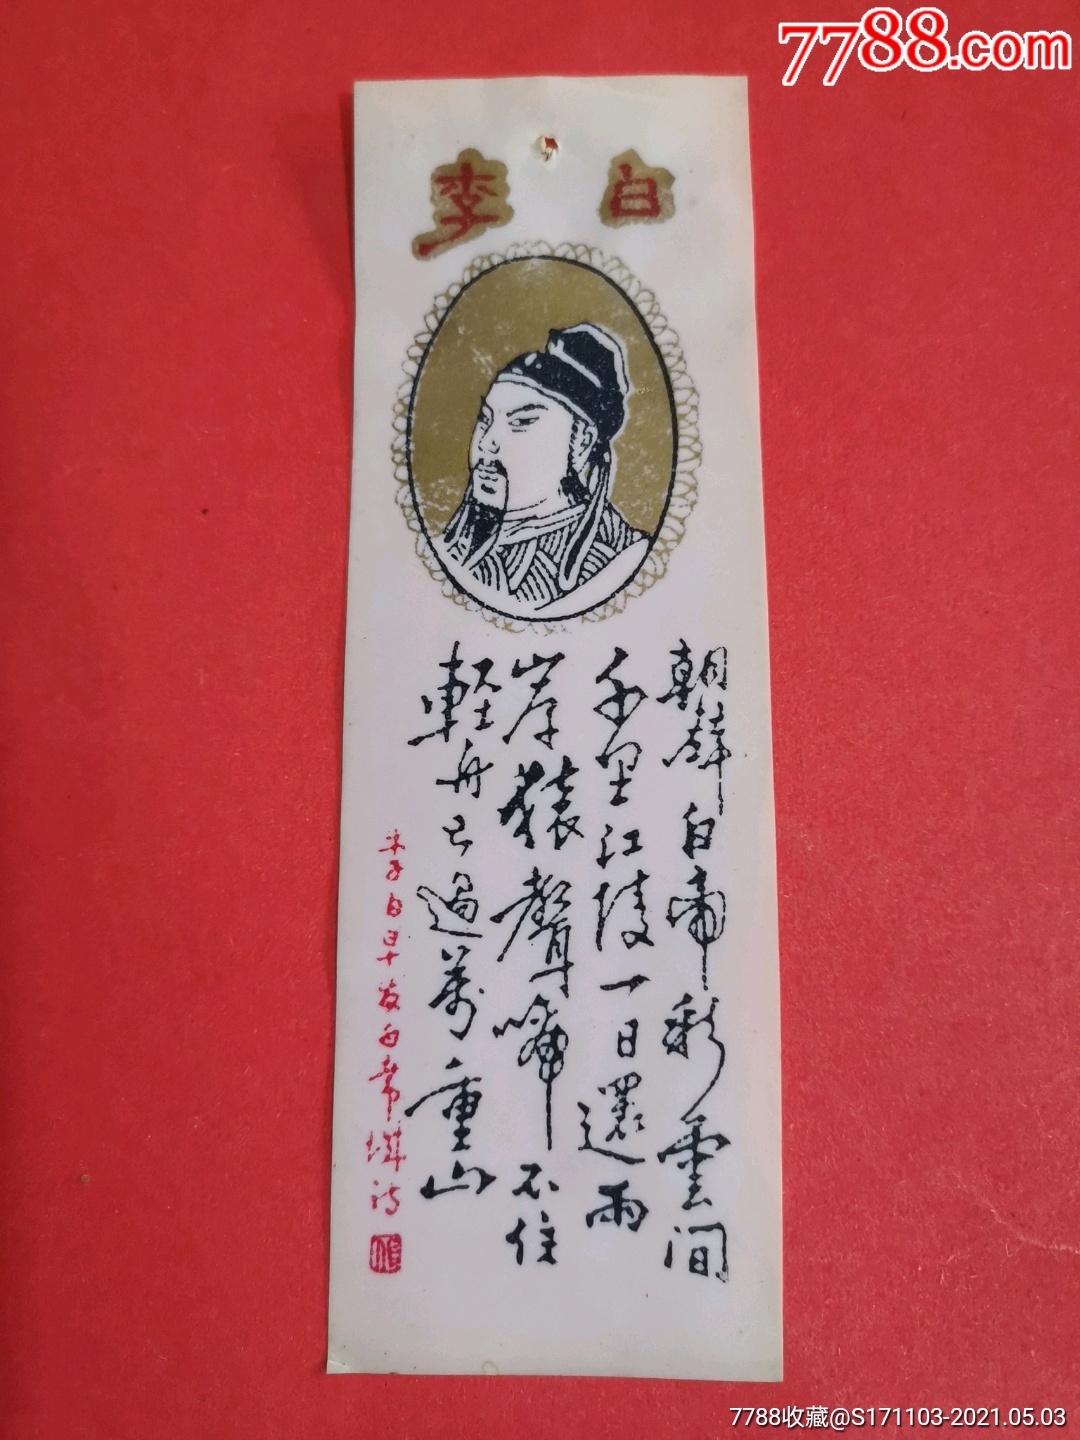 7788.com
李白
朝辞白帝彩雲间
千里江陵一日還兩
岸猿聲啼不住
輕舟已過萬重山
李白早发白帝城诗
7788收藏@S171103-2021.05.03